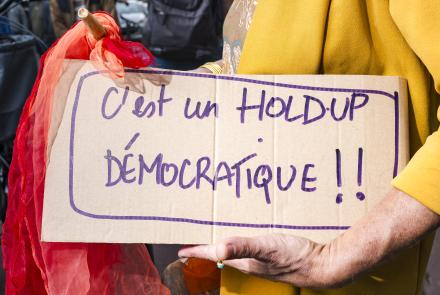 C'est un HOLDUP
DÉMOCRATIQUE !!